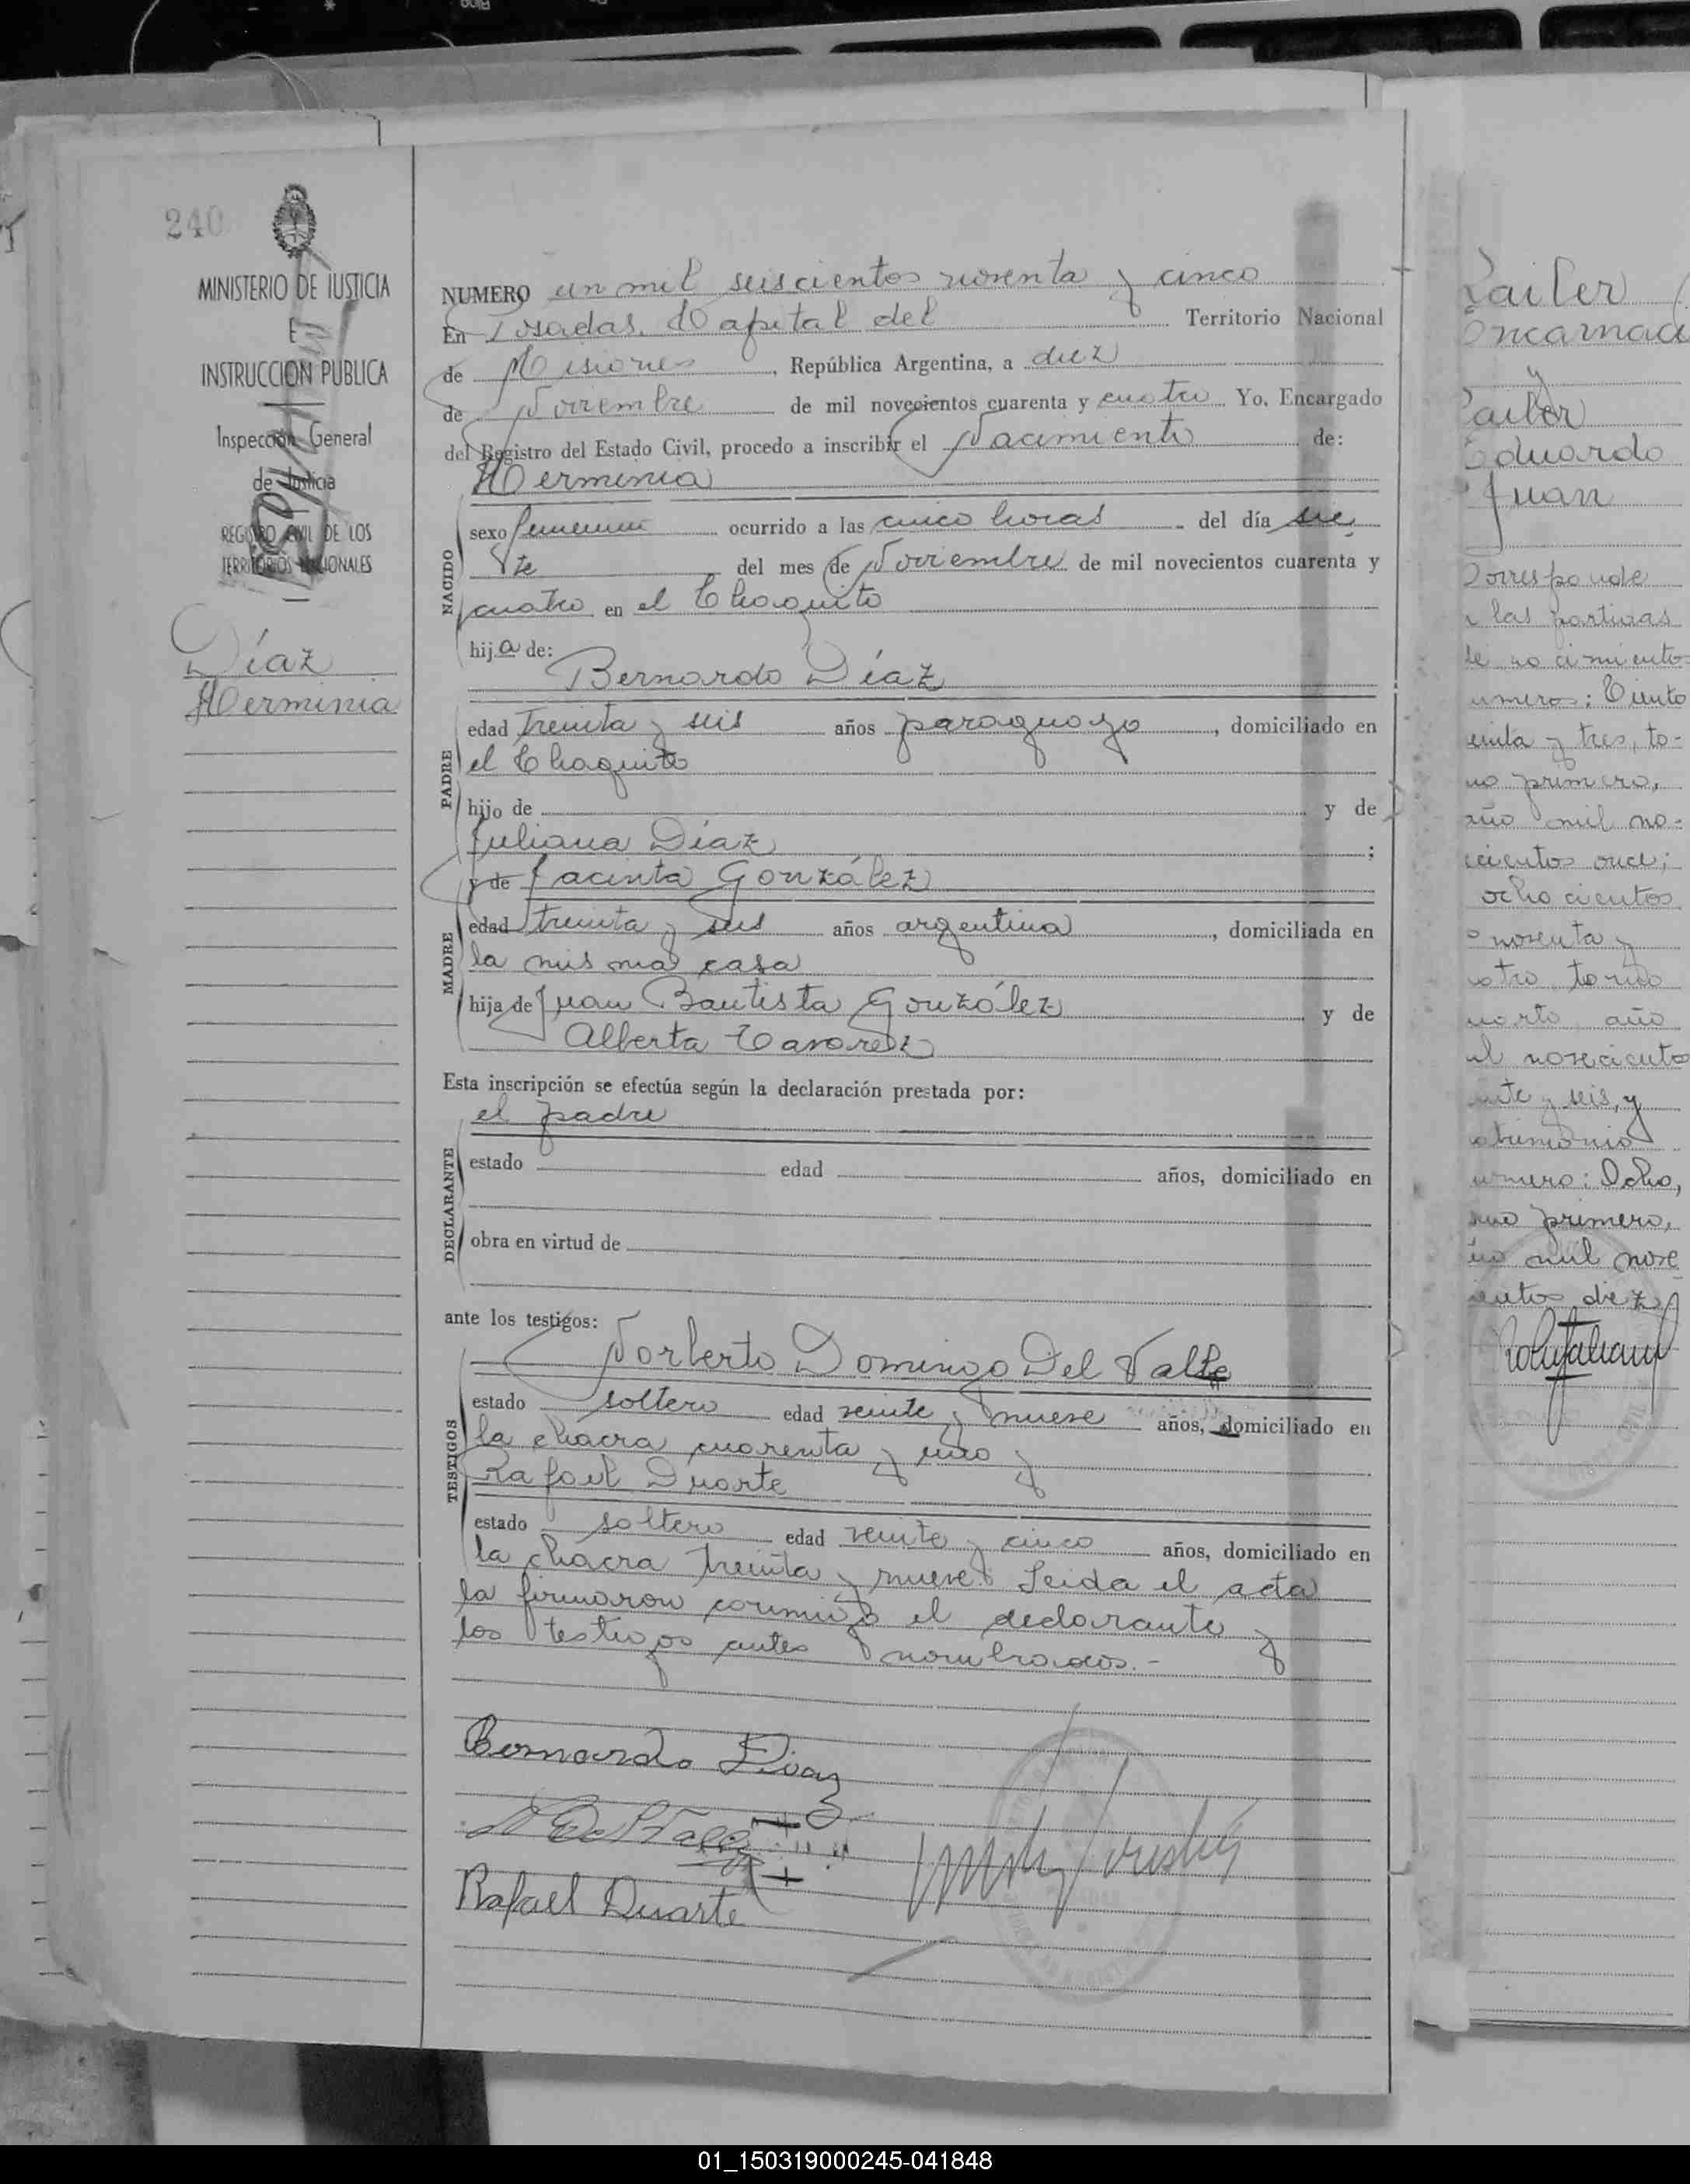 240
MINISTERIO DE JUSTICIA
E
INSTRUCCION PUBLICA
Inspección General
de Justicia
REGISTRO CIVIL DE LOS
TERRITORIOS NACIONALES
Díaz
Herminia
NUMERO un mil seiscientos noventa y cinco
En Posadas, Capital del Territorio Nacional
de Misiones, República Argentina, a diez
de Noviembre de mil novecientos cuarenta y cuatro Yo, Encargado
del Registro del Estado Civil, procedo a inscribir el Nacimiento de:
Herminia
NACIDO
sexo femenino ocurrido a las cinco horas del día sie
te del mes de Noviembre de mil novecientos cuarenta y
cuatro en el Chaquito
hija de:
Bernardo Díaz
PADRE
edad treinta y seis años paraguayo, domiciliado en
el Chaquito
hijo de y de
Juliana Díaz ;
y de Jacinta González
MADRE
edad treinta y seis años argentina, domiciliada en
la misma casa
hija de Juan Bautista González y de
Alberta
Esta inscripción se efectúa según la declaración prestada por:
el padre
DECLARANTE
estado edad años, domiciliado en
obra en virtud de
ante los testigos:
Norberto Domingo Del Valle
TESTIGOS
estado soltero edad veinte y nueve años, domiciliado en
la chacra cuarenta y uno y
Rafael Duarte
estado soltero edad veinte y cinco años, domiciliado en
la chacra treinta y nueve. Leida el acta
la firmaron conmigo el declarante y
los testigos antes nombrados.-
Bernardo Diaz
Rafael Duarte
Encarnaci
y
Eduardo
Juan
Corresponde
a las partidas
de nacimiento
numeros: Ciento
y tres, to-
mo primero,
año mil no-
once;
ochocientos
noventa y
tomo
año
mil novecientos
y seis, y
matrimonio
numero: Ocho,
primero,
mil nove
diez
01_150319000245-041848